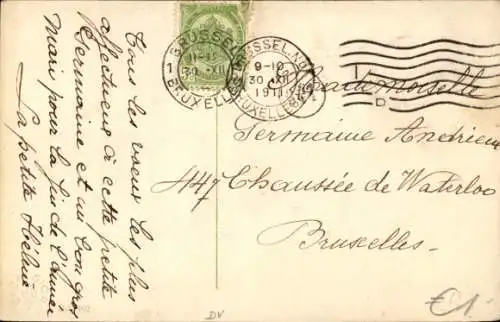 Tous les vœux les plus
affectueux à cette petite
Germaine et un bon gros
Mari pour la fin de l'année
La petite Hélène
BRUSSEL
1 30 XII
BRUXELLES
BRUSSEL
9-10
30 XII
1911
BRUXELLES
1
D
Mademoiselle
Germaine Andrieu
447 Chaussée de Waterloo
Bruxelles.
€1.
DV